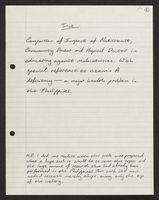 Title
Comparison of Impact of Multimedia,
Community Based and Hospital Based in
educating against malnutrition. With
special reference to vitamin A
deficiency — a major health problem in
the Philippines.
N.B. I did not realise when this work was proposed
what a large unit it would be to cover the topic and
the large amount of research that had already been
performed in the Philippines. But with still much
needed research merely chips away only the tip
of the iceberg.